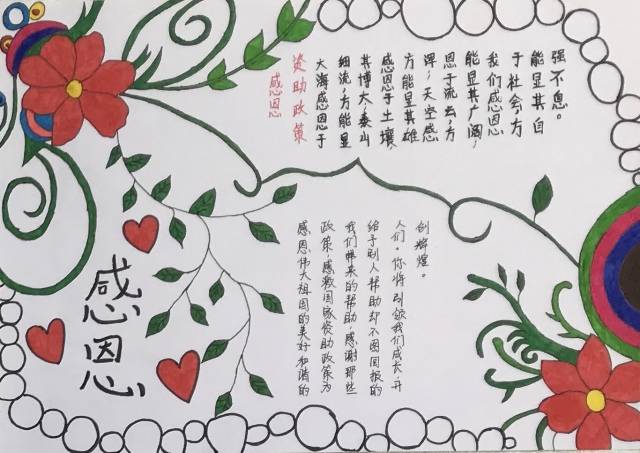 感恩
资助政策
大海感恩于
细流,方能显
其博大,泰山
感恩于土壤
方能显其雄
浑,天空感
恩于流云,方
能显其广阔,
我们感恩
于社会,方
能显其自
强不息。
感恩
感恩伟大祖国的美好和谐的
政策,感激国家资助政策为
我们带来的帮助,感谢那些
给予别人帮助却不图回报的
人们。你将引领我们成长,开
创辉煌。